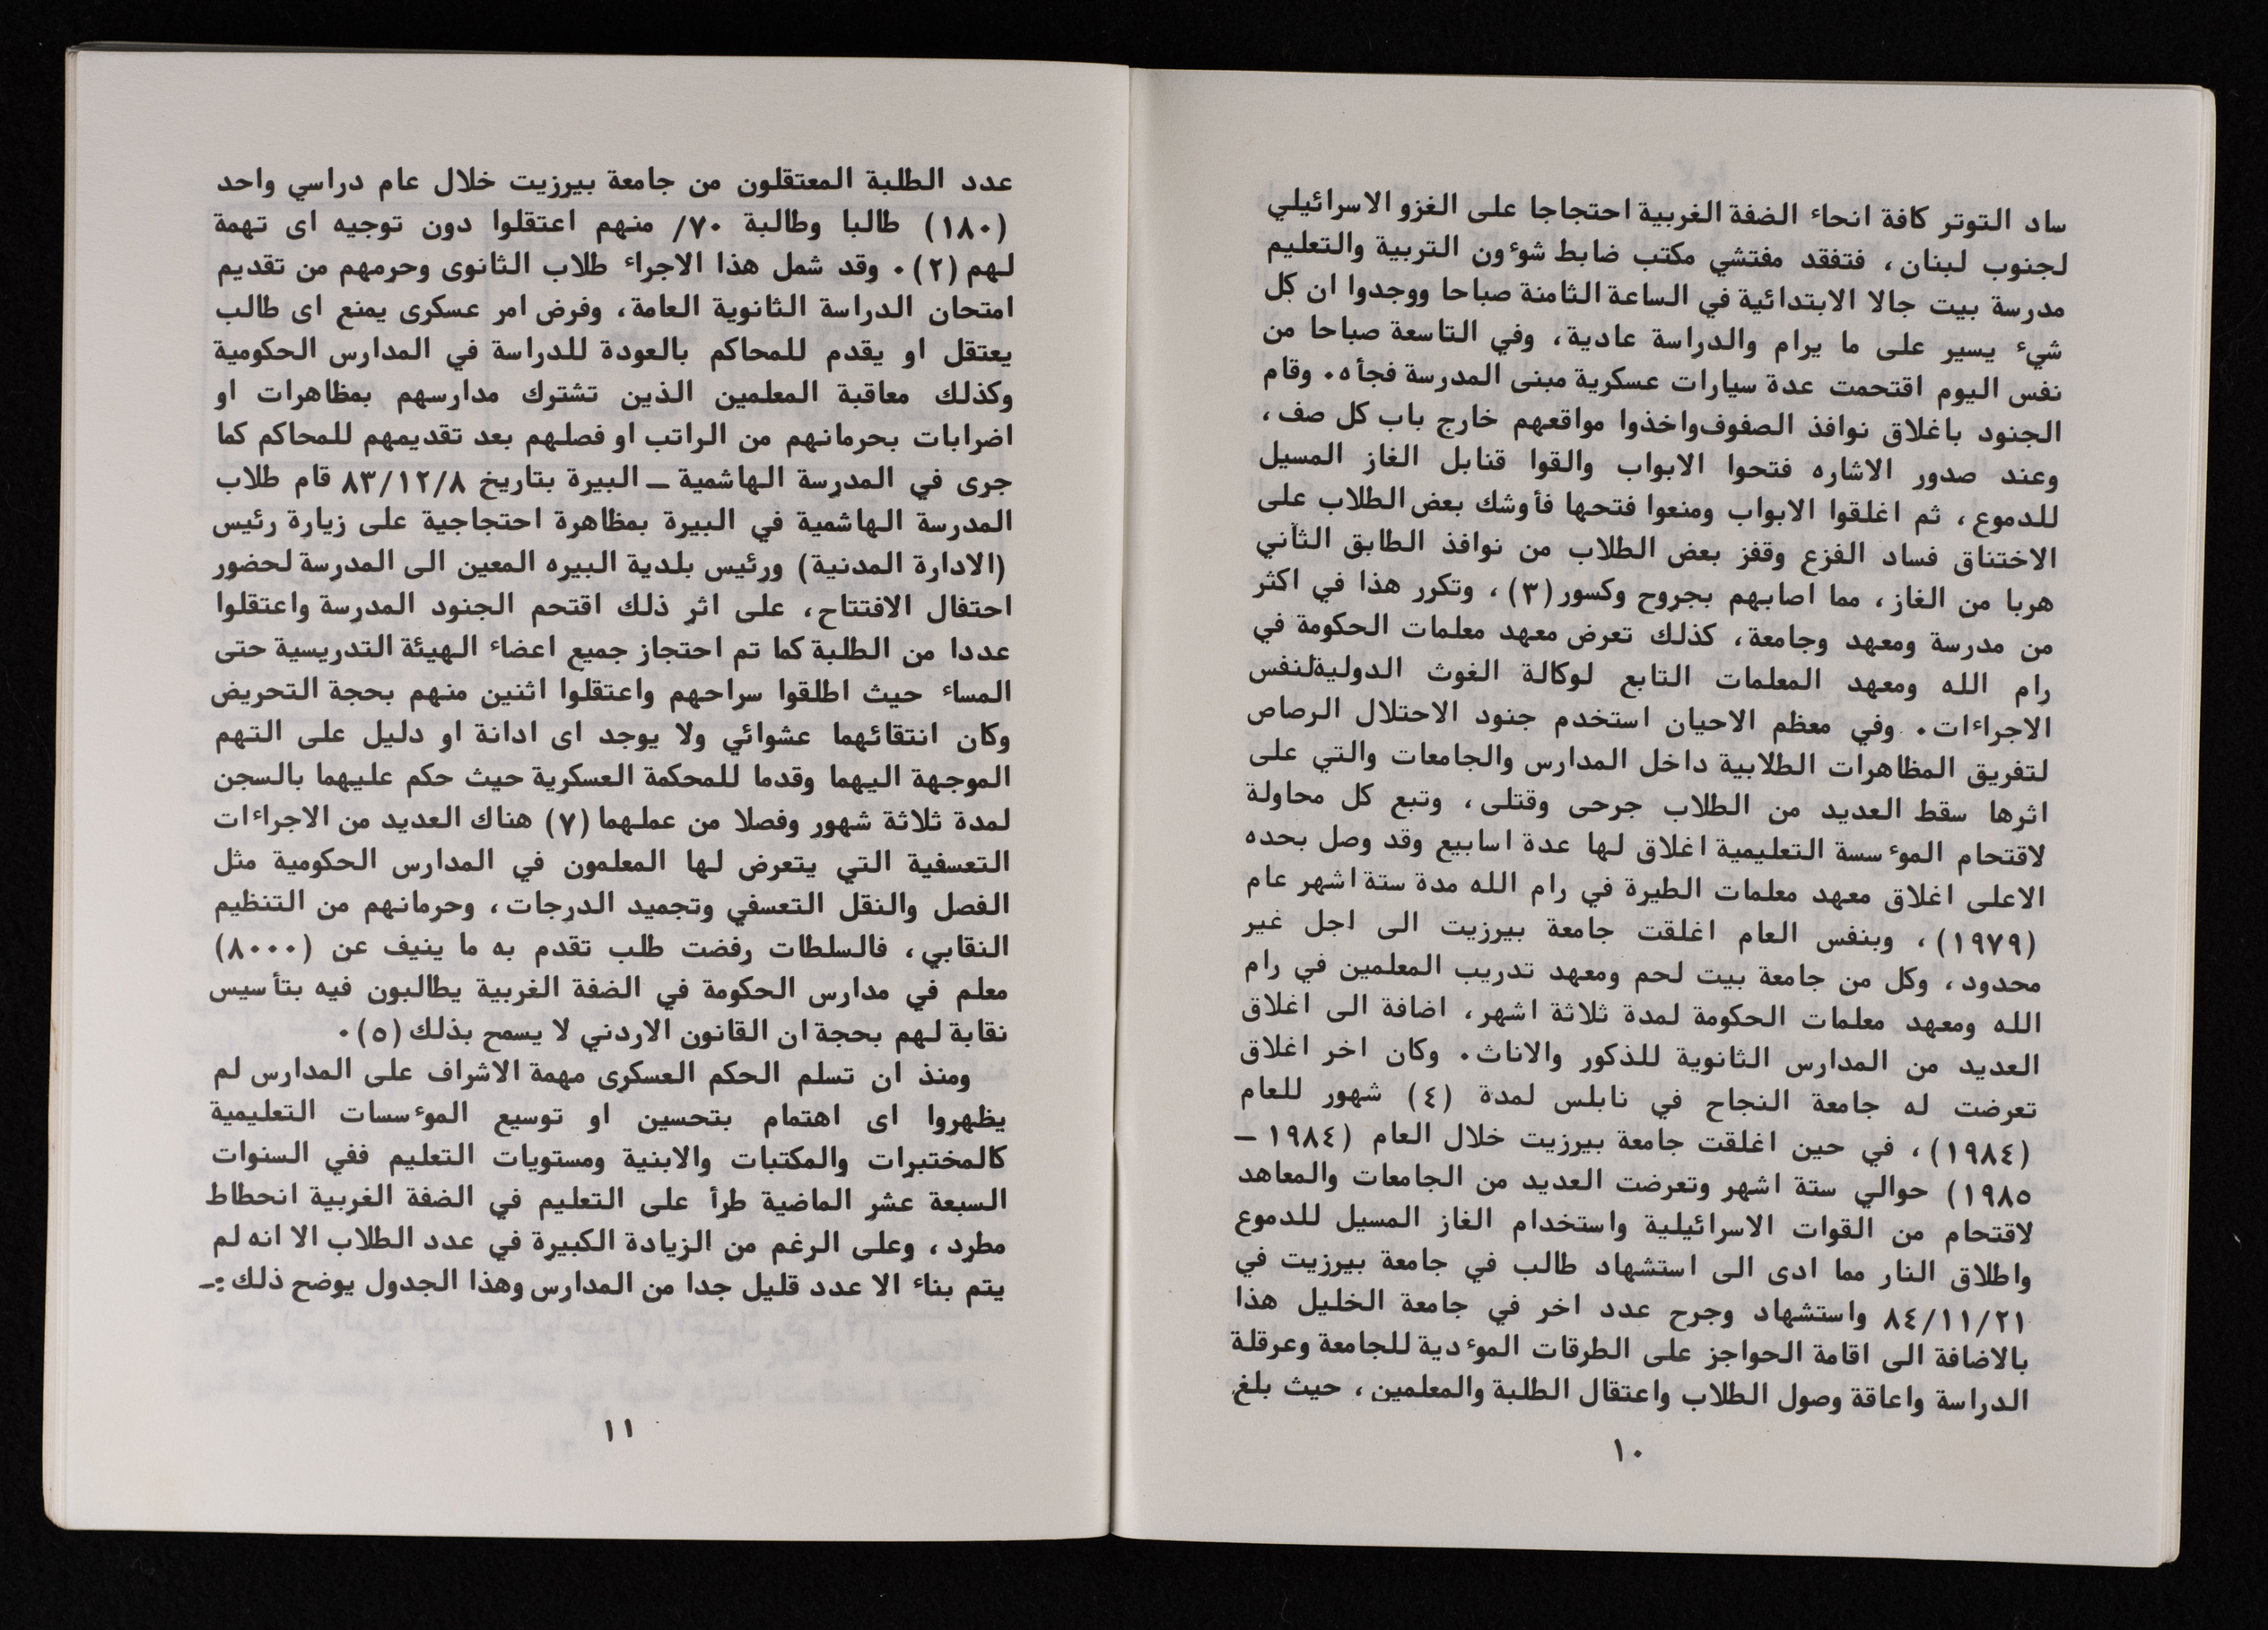 ساد التوتر كافة انحاء الضفة الغربية احتجاجا على الغزو الاسرائيلي
لجنوب لبنان، فتفقد مفتشي مكتب ضابط شوءون التربية والتعليم
مدرسة بيت جالا الابتدائية في الساعة الثامنة صباحا ووجدوا ان كل
شيء يسير على ما يرام والدراسة عادية، وفي التاسعة صباحا من
نفس اليوم اقتحمت عدة سيارات عسكرية مبنى المدرسة فجأه٠ وقام
الجنود باغلاق نوافذ الصفوف واخذوا مواقعهم خارج باب كل صف،
وعند صدور الاشاره فتحوا الابواب والقوا قنابل الغاز المسيل
للدموع، ثم اغلقوا الابواب ومنعوا فتحها فأوشك بعض الطلاب على
الاختناق فساد الفزع وقفز بعض الطلاب من نوافذ الطابق الثاني
هربا من الغاز، مما اصابهم بجروح وكسور (٣)، وتكرر هذا في اكثر
من مدرسة ومعهد وجامعة، كذلك تعرض معهد معلمات الحكومة في
رام الله ومعهد المعلمات التابع لوكالة الغوث الدولية لنفس
الاجراءات٠ وفي معظم الاحيان استخدم جنود الاحتلال الرصاص
لتفريق المظاهرات الطلابية داخل المدارس والجامعات والتي على
اثرها سقط العديد من الطلاب جرحى وقتلى، وتبع كل محاولة
لاقتحام الموءسسة التعليمية اغلاق لها عدة اسابيع وقد وصل بحده
الاعلى اغلاق معهد معلمات الطيرة في رام الله مدة ستة اشهر عام
(١٩٧٩)، وبنفس العام اغلقت جامعة بيرزيت الى اجل غير
محدود، وكل من جامعة بيت لحم ومعهد تدريب المعلمين في رام
الله ومعهد معلمات الحكومة لمدة ثلاثة اشهر، اضافة الى اغلاق
العديد من المدارس الثانوية للذكور والاناث٠ وكان اخر اغلاق
تعرضت له جامعة النجاح في نابلس لمدة (٤) شهور للعام
(١٩٨٤)، في حين اغلقت جامعة بيرزيت خلال العام (١٩٨٤ –
١٩٨٥) حوالي ستة اشهر وتعرضت العديد من الجامعات والمعاهد
لاقتحام من القوات الاسرائيلية واستخدام الغاز المسيل للدموع
واطلاق النار مما ادى الى استشهاد طالب في جامعة بيرزيت في
٨٤/١١/٢١ واستشهاد وجرح عدد اخر في جامعة الخليل هذا
بالاضافة الى اقامة الحواجز على الطرقات الموءدية للجامعة وعرقلة
الدراسة واعاقة وصول الطلاب واعتقال الطلبة والمعلمين، حيث بلغ
١٠
عدد الطلبة المعتقلون من جامعة بيرزيت خلال عام دراسي واحد
(١٨٠) طالبا وطالبة ٧٠/ منهم اعتقلوا دون توجيه اى تهمة
لهم (٢)٠ وقد شمل هذا الاجراء طلاب الثانوى وحرمهم من تقديم
امتحان الدراسة الثانوية العامة، وفرض امر عسكرى يمنع اى طالب
يعتقل او يقدم للمحاكم بالعودة للدراسة في المدارس الحكومية
وكذلك معاقبة المعلمين الذين تشترك مدارسهم بمظاهرات او
اضرابات بحرمانهم من الراتب او فصلهم بعد تقديمهم للمحاكم كما
جرى في المدرسة الهاشمية – البيرة بتاريخ ٨٣/١٢/٨ قام طلاب
المدرسة الهاشمية في البيرة بمظاهرة احتجاجية على زيارة رئيس
(الادارة المدنية) ورئيس بلدية البيره المعين الى المدرسة لحضور
احتفال الافتتاح، على اثر ذلك اقتحم الجنود المدرسة واعتقلوا
عددا من الطلبة كما تم احتجاز جميع اعضاء الهيئة التدريسية حتى
المساء حيث اطلقوا سراحهم واعتقلوا اثنين منهم بحجة التحريض
وكان انتقائهما عشوائي ولا يوجد اى ادانة او دليل على التهم
الموجهة اليهما وقدما للمحكمة العسكرية حيث حكم عليهما بالسجن
لمدة ثلاثة شهور وفصلا من عملهما (٧) هناك العديد من الاجراءات
التعسفية التي يتعرض لها المعلمون في المدارس الحكومية مثل
الفصل والنقل التعسفي وتجميد الدرجات، وحرمانهم من التنظيم
النقابي، فالسلطات رفضت طلب تقدم به ما ينيف عن (٨٠٠٠)
معلم في مدارس الحكومة في الضفة الغربية يطالبون فيه بتأسيس
نقابة لهم بحجة ان القانون الاردني لا يسمح بذلك (٥)٠
ومنذ ان تسلم الحكم العسكرى مهمة الاشراف على المدارس لم
يظهروا اى اهتمام بتحسين او توسيع الموءسسات التعليمية
كالمختبرات والمكتبات والابنية ومستويات التعليم ففي السنوات
السبعة عشر الماضية طرأ على التعليم في الضفة الغربية انحطاط
مطرد، وعلى الرغم من الزيادة الكبيرة في عدد الطلاب الا انه لم
يتم بناء الا عدد قليل جدا من المدارس وهذا الجدول يوضح ذلك :–
١١